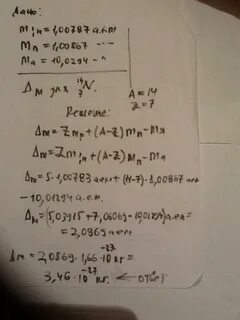 Дано:
m₁н = 1,00787 а.е.м
mп = 1,00867 -"-
mа = 10,0294 -"-
Δm для ¹⁴₇N.
A = 14
Z = 7
Решение:
Δm = Zmp + (A-Z) mп - mя
Δm = Zm¦н + (A-Z) mп - mа
Δm = 5·1,00783 аем + (14-7)·1,00867 аем
- 10,01294 а.е.м.
Δm = (5,03915 + 7,06069 - 10,01294) а.е.м =
= 2,0869 аем
Δm = 2,0869·1,66·10⁻²⁷ кг =
3,46·10⁻²⁷ кг. ← ответ